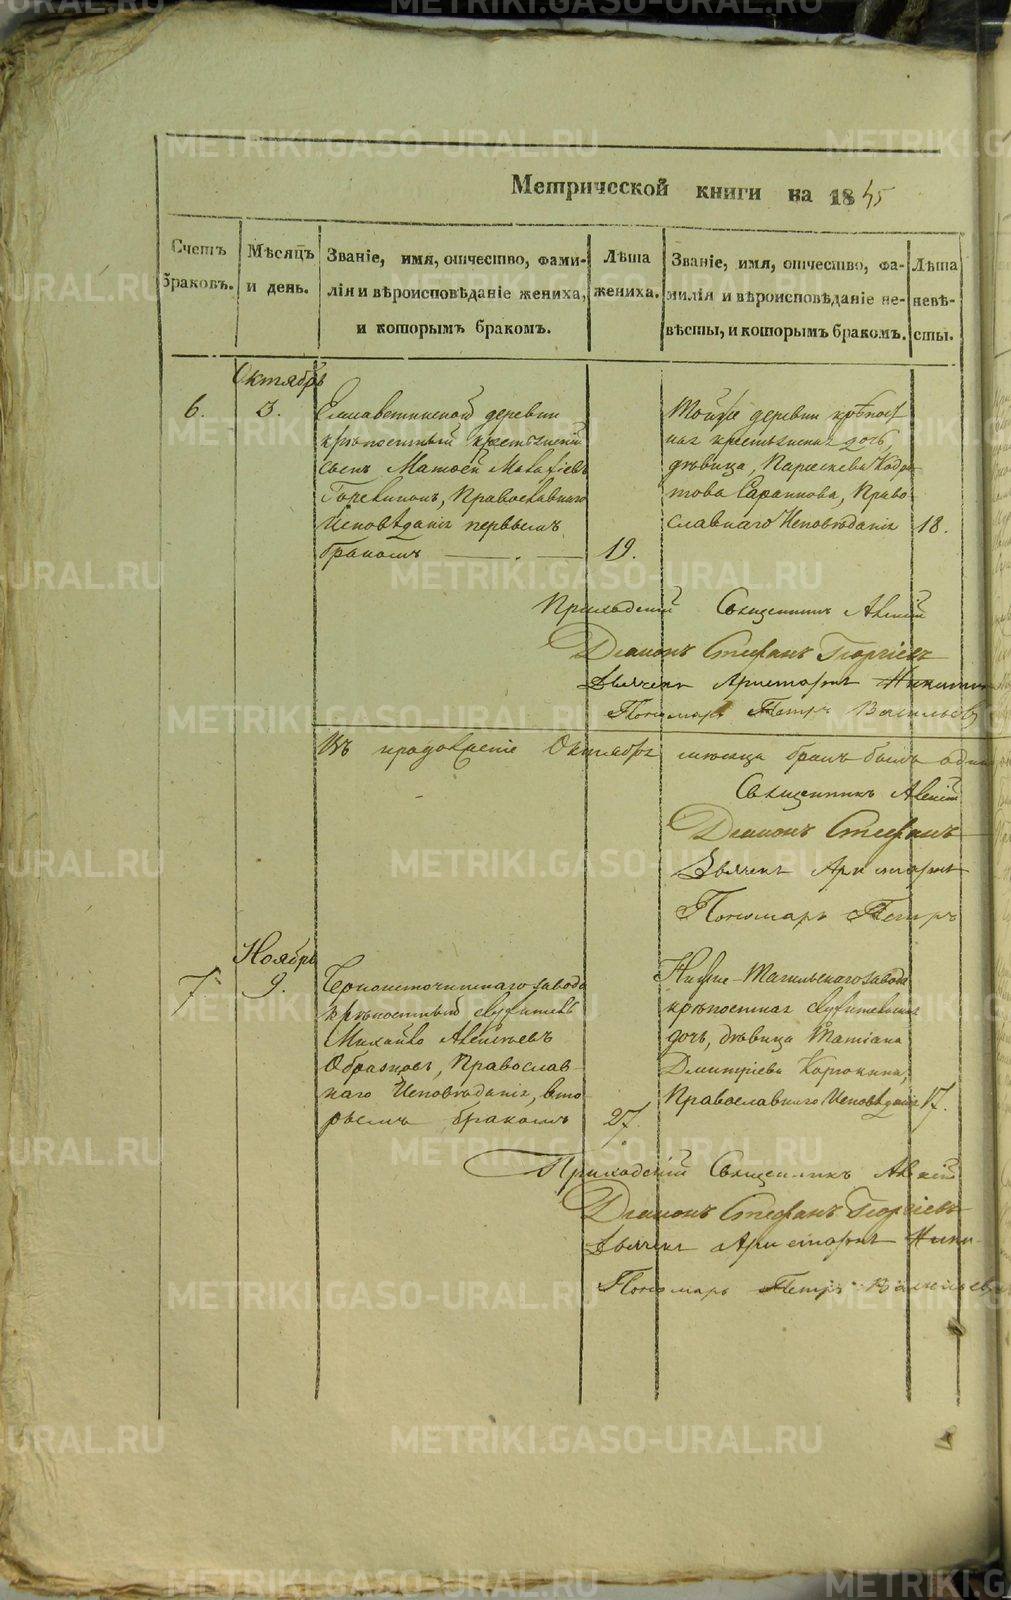 METRIKI.GASO-URAL.RU
Метрической книги на 1845
Счетъ браковъ.
Мѣсяцъ и день.
Званіе, имя, отчество, фами-
лія и вѣроисповѣданіе жениха,
и которымъ бракомъ.
Лѣта
жениха.
Званіе, имя, отчество, фа-
милія и вѣроисповѣданіе не-
вѣсты, и которымъ бракомъ.
Лѣта
невѣ-
сты.
Октябрь
6.
3.
Елисаветинской деревни
крѣпостный крестьянскій
сынъ Матѳей
Православнаго
Исповѣданія первымъ
бракомъ
19.
Тойже деревни крѣпост
ная крестьянская дочь,
дѣвица, Параскева Кодра
това Сараннова, Право
славнаго Исповѣданія
18.
Приходскій Священникъ
Діаконъ Стефанъ Георгіевъ
Дьячекъ Аристархъ
Пономарь Петръ Васильевъ
Въ продолженіе Октября месяца бракъ былъ одинъ
Священникъ
Діаконъ Стефанъ
Дьячекъ Аристархъ
Пономарь Петръ
Ноябрь
7
9.
Черноисточинскаго завода
крѣпостный служитель
Михайло Алексѣевъ
Образцовъ, Православ
наго Исповѣданія, вто
рымъ бракомъ
27.
Нижне-Тагильскаго завода
крѣпостная служительская
дочь, дѣвица Татіана
Димитріева Корюкина,
Православнаго Исповѣданія
17.
Приходскій Священникъ
Діаконъ Стефанъ Георгіевъ
Дьячекъ Аристархъ
Пономарь Петръ Васильевъ